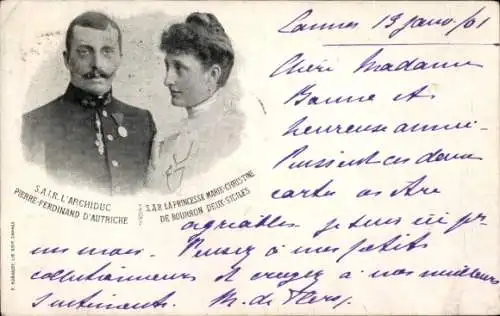 Cannes 13 janv. /01
Chère Madame
Bonne et
heureuse année.
Puissent ces deux
cartes vous être
agréables. je suis ici pr
un mois. Pensez à mes petits
collectionneurs et croyez à nos meilleurs
sentiments. M. de
S.A.I.R. L'ARCHIDUC
PIERRE-FERDINAND D'AUTRICHE
S.A.R. LA PRINCESSE MARIE-CHRISTINE
DE BOURBON DEUX-SICILES